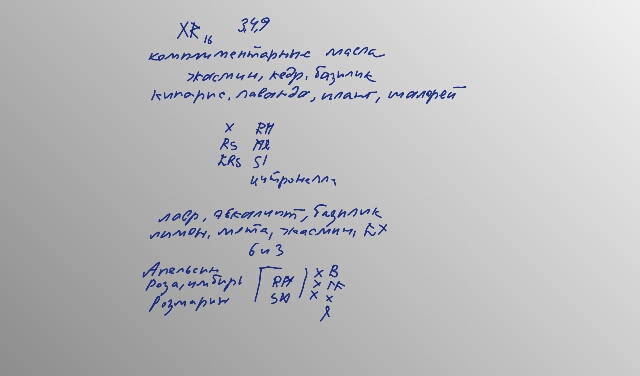 XR16 3,4,9
комплиментарные масла
жасмин, кедр, базилик
кипарис, лаванда, шалфей
X RM
RS
SI
цитронелла
лавр, эвкалипт, базилик
лимон, мята, жасмин,
6 и 3
Апельсин
Роза, имбирь
Розмарин
X B
X
X X